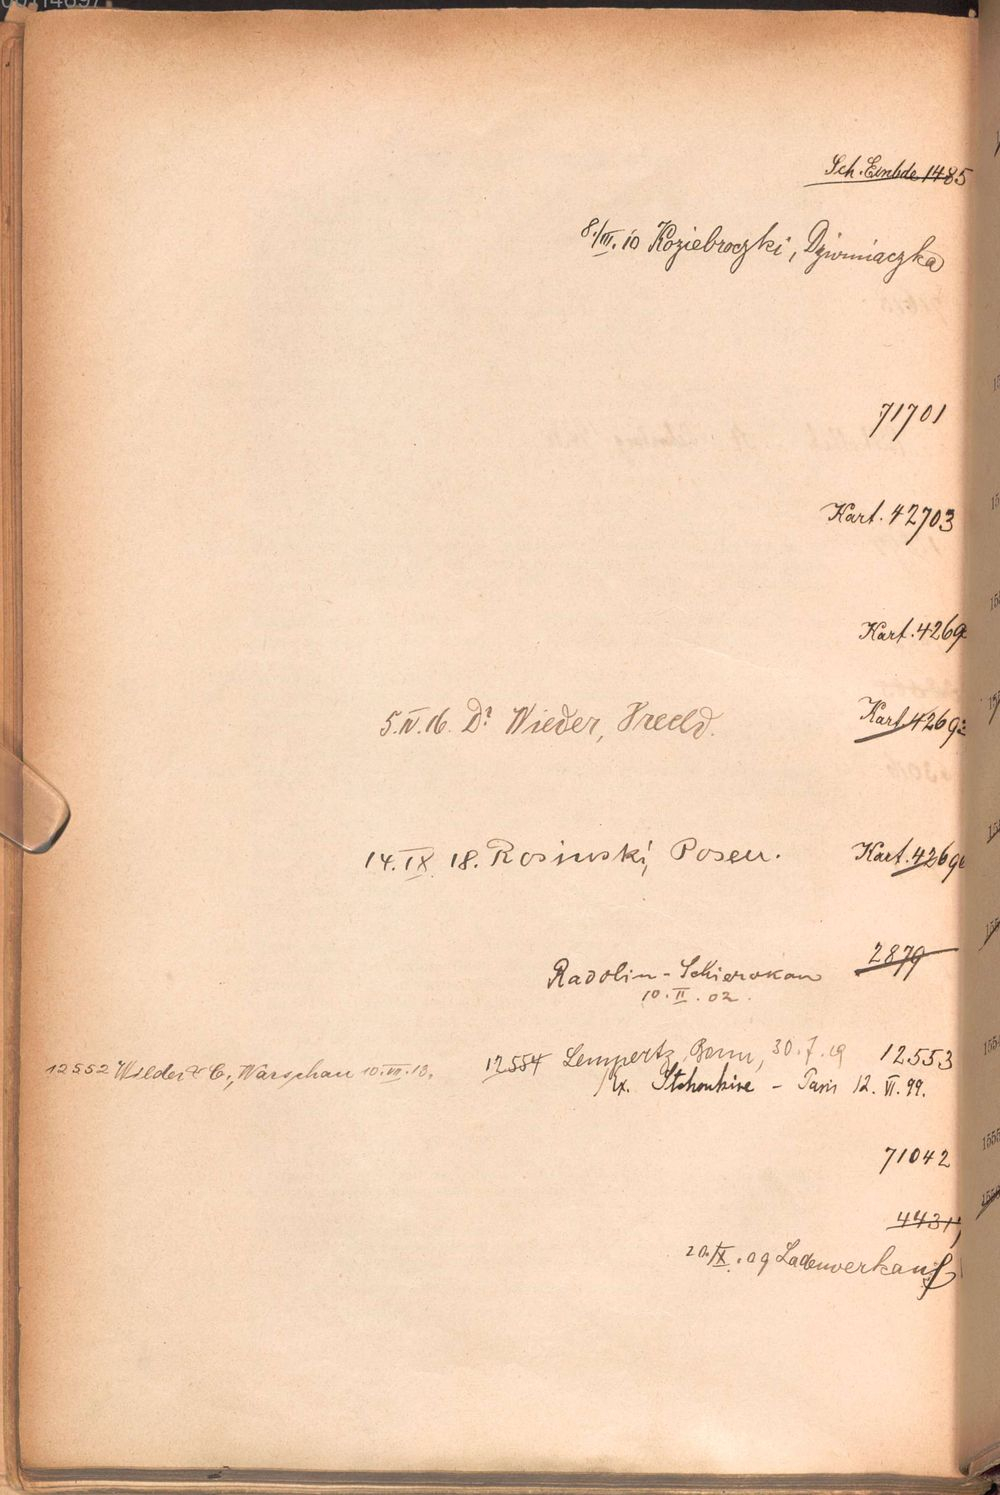 Sch. Einbde 1485
8./III. 10 Koziebrodzki, Dzwiniaczka
71701
Kart. 42703
Kart. 4269
5.IV.16. Dr Wieder,
Kart. 4269
14.IX.18. Rosinski, Posen.
Kart. 4269
2879
Radolin - Schierokau
10.II.02.
12552 Wilder & C., Warschau 10.VII.13.
12554 Lempertz, Bonn, 30.7.19 12553
Stchoukine - Paris 12.VI.99.
71042
4431
20./IX.09 Ladenverkauf